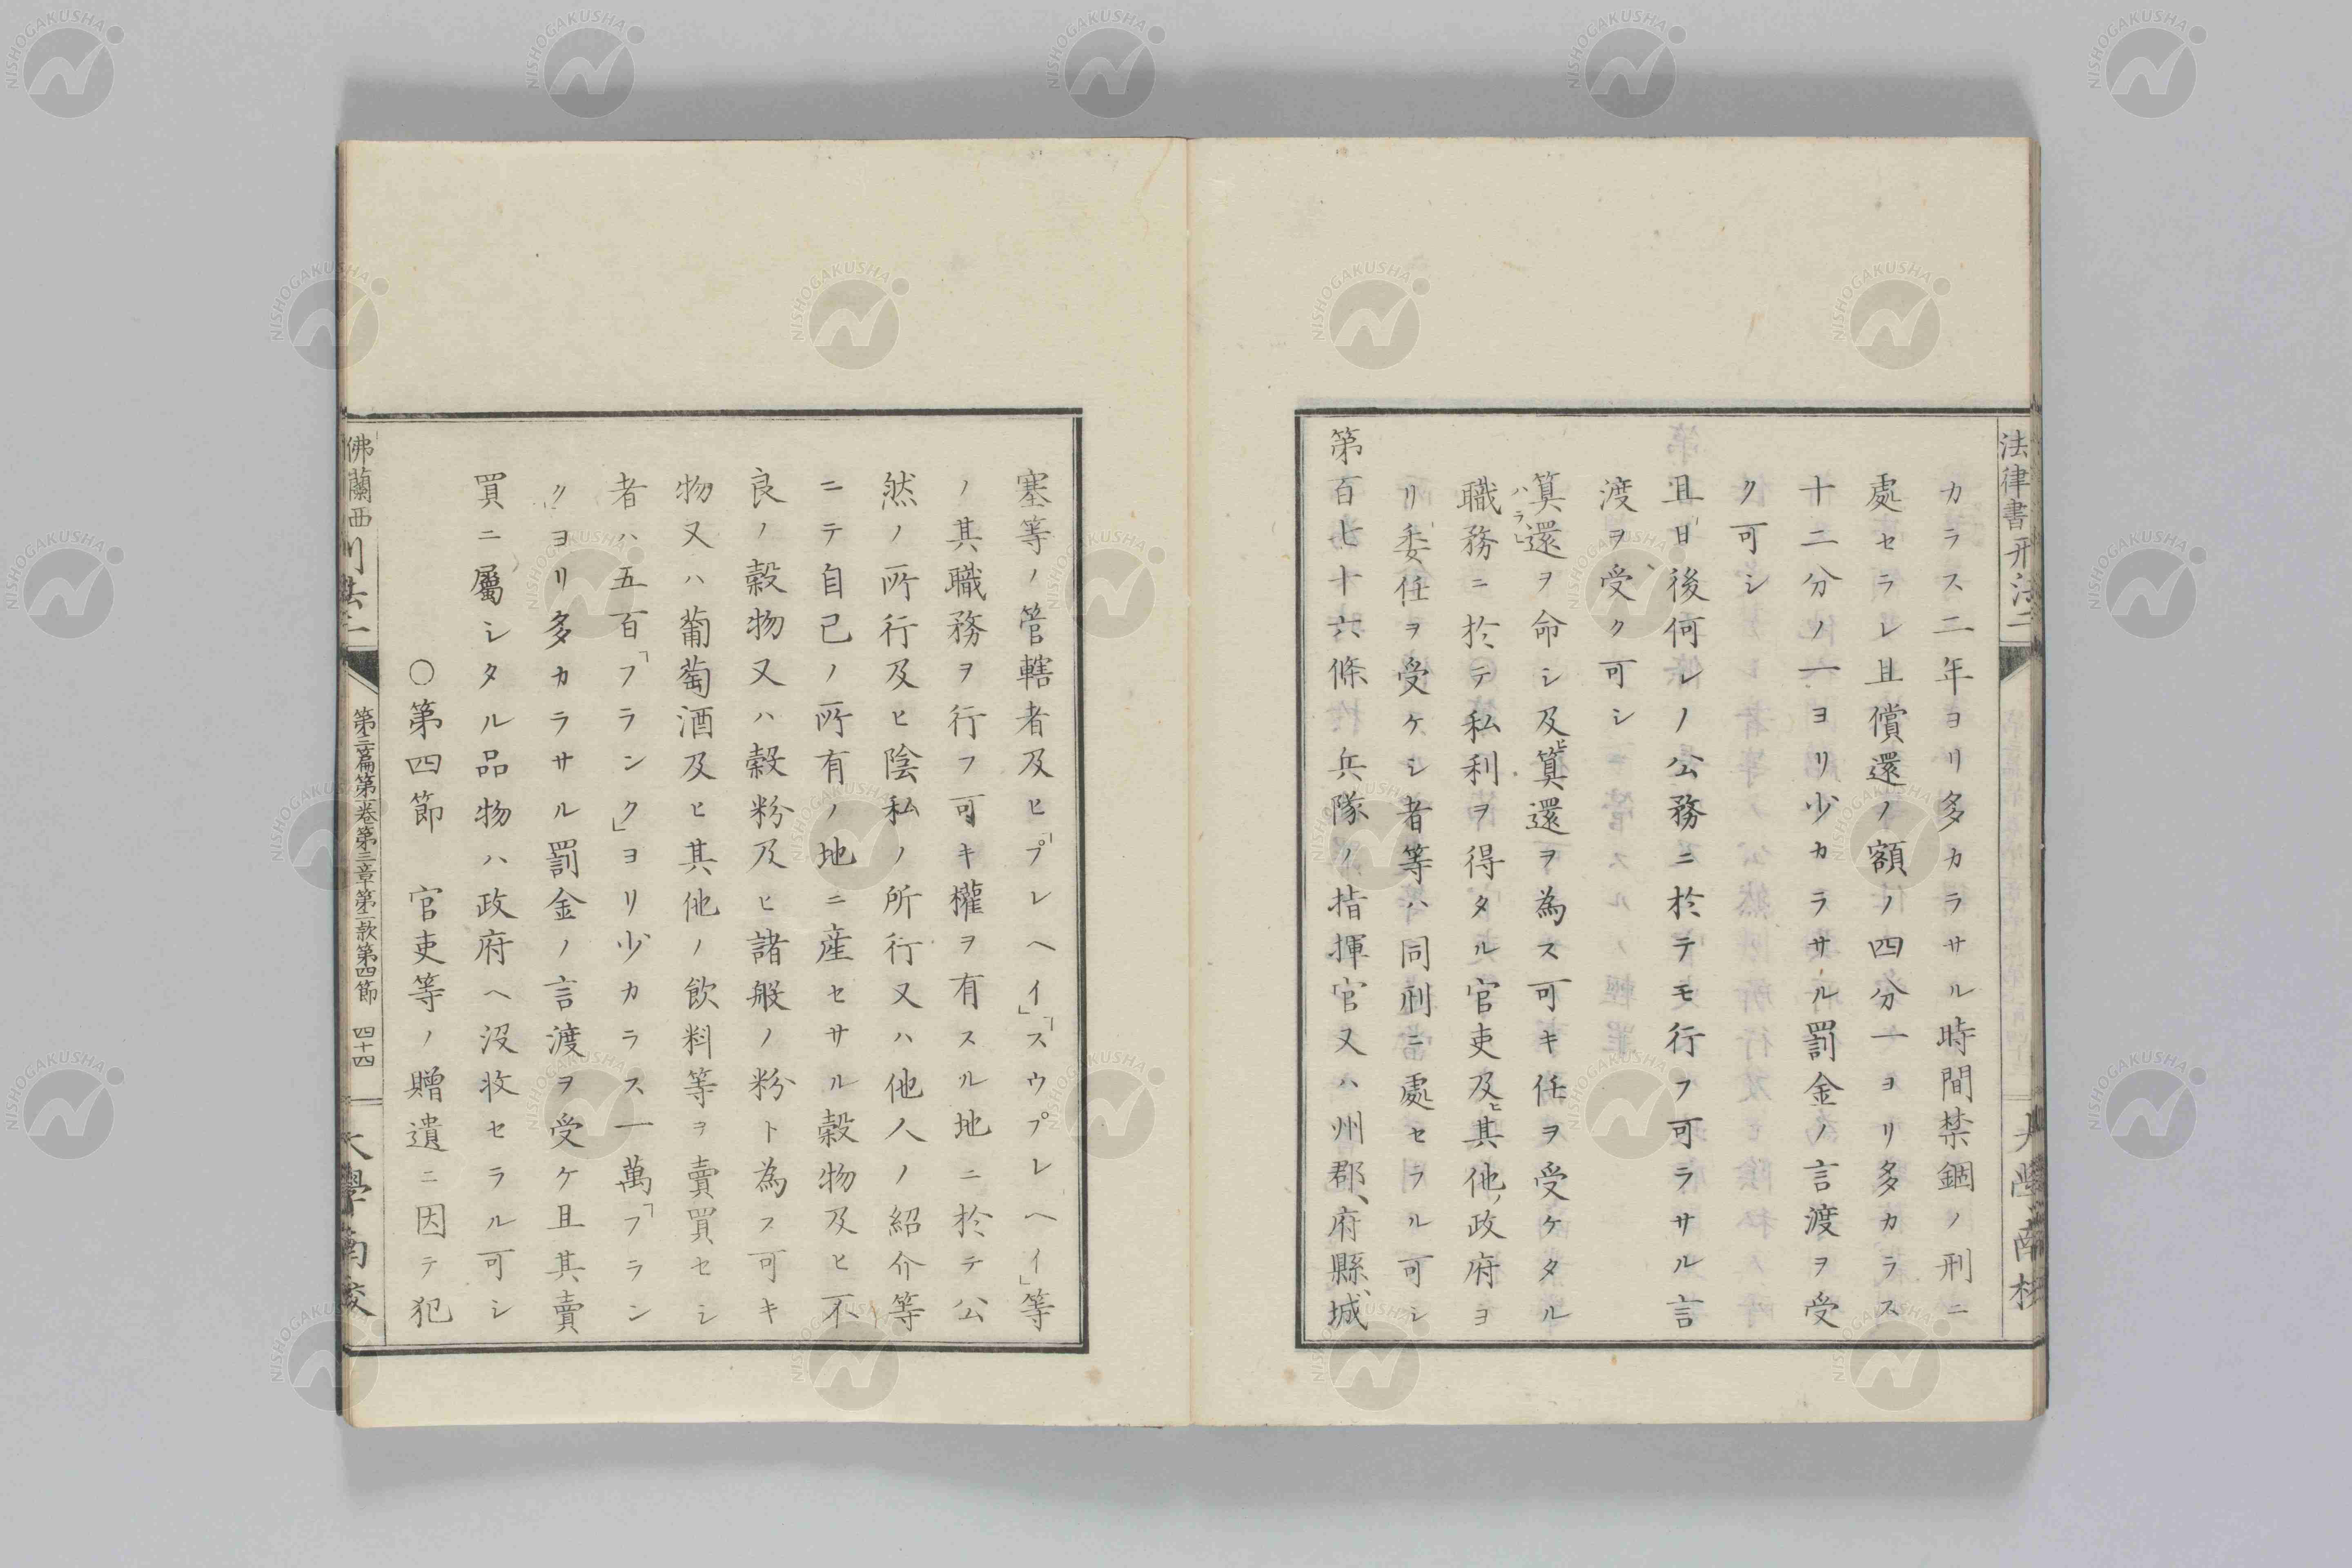 法律書刑法二
カラス二年ヨリ多カラサル時間禁錮ノ刑ニ
處セラレ且償還ノ額ノ四分一ヨリ多カラス
十二分ノ一ヨリ少カラサル罰金ノ言渡ヲ受
ク可シ
且日後何レノ公務ニ於テモ行フ可ラサル言
渡ヲ受ク可シ
算還ヲ命シ及ヒ算還ヲ為ス可キ任ヲ受ケタル
ハラヒ
職務ニ於テ私利ヲ得タル官吏及ヒ其他ノ政府ヨ
リ委任ヲ受ケシ者等ハ同刑ニ處セラル可シ
第百七十六條 兵隊ノ指揮官又ハ州郡、府縣、城
塞等ノ管轄者及ヒ「プレヘイ」「スウプレヘイ」等
ノ其職務ヲ行フ可キ權ヲ有スル地ニ於テ公
然ノ所行及ヒ陰私ノ所行又ハ他人ノ紹介等
ニテ自己ノ所有ノ地ニ産セサル穀物及ヒ不
良ノ穀物又ハ穀粉及ヒ諸般ノ粉ト為ス可キ
物又ハ葡萄酒及ヒ其他ノ飲料等ヲ賣買セシ
者ハ五百「フランク」ヨリ少カラス一萬「フラン
ク」ヨリ多カラサル罰金ノ言渡ヲ受ケ且其賣
買ニ屬シタル品物ハ政府ヘ沒收セラル可シ
〇第四節 官吏等ノ贈遺ニ因テ犯
佛蘭西刑法二
第三篇第一卷第三章第二款第四節 四十四
大學南校
NISHOGAKUSHA